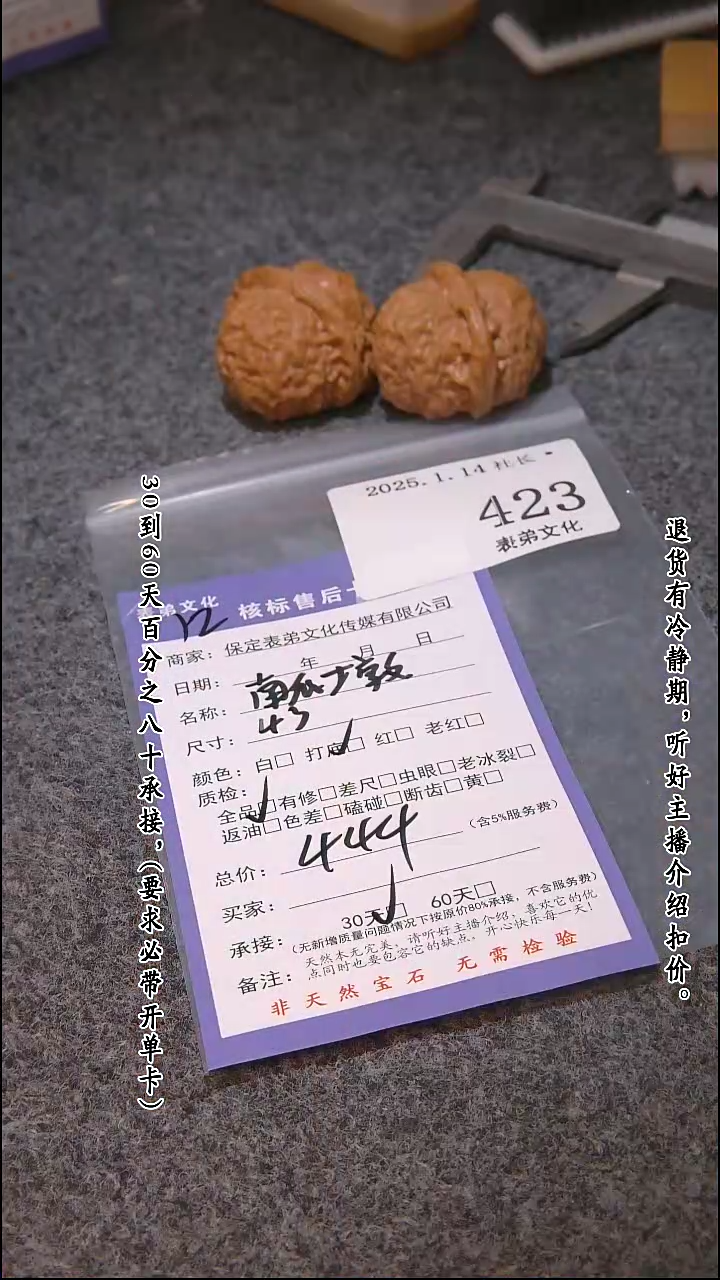 2025.1.14 社长
423
表弟文化
表弟文化 核标售后卡
12
商家：保定表弟文化传媒有限公司
日期： 年 月 日
名称：南瓜大敦
尺寸：43
颜色：白□ 打底□ 红□ 老红□
质检：
全品□有修□差尺□虫眼□老冰裂□
返油□色差□磕碰□断齿□黄□
总价：444 (含5%服务费)
买家：
承接：30天□ 60天□
(无新增质量问题情况下按原价80%承接，不含服务费)
备注：天然本无完美，请听好主播介绍，喜欢它的优
点同时也要包容它的缺点，开心快乐每一天！
非天然宝石 无需检验
30到60天百分之八十承接，（要求必带开单卡）
退货有冷静期，听好主播介绍扣价。